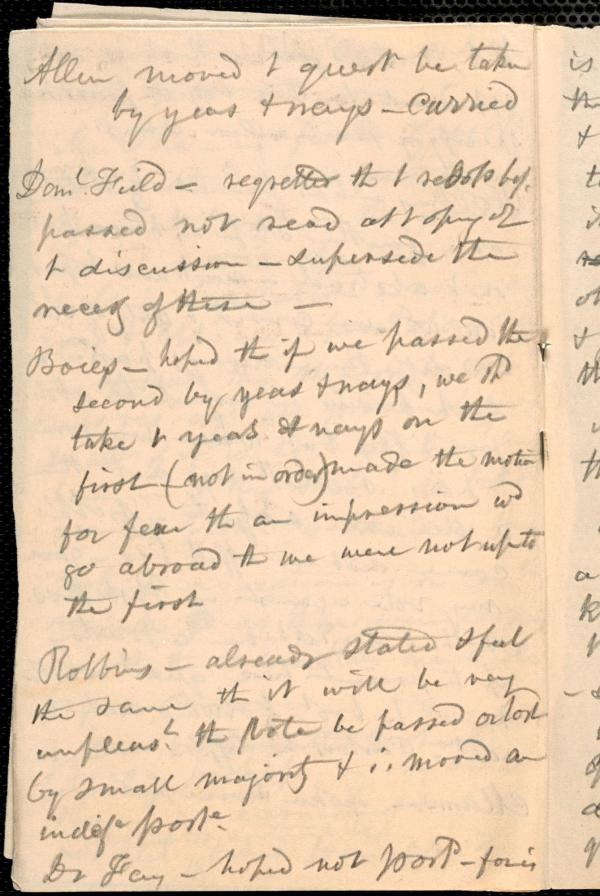 Allen moved t quest be taken
by yeas & nays - carried
Danl. Field - regretted th t resols bef.
passed not read at t opng of
t discussion - supersede the
necess of these -
Boies - hoped th if we passed the
second by yeas & nays, we shd
take t yeas & nays on the
first (not in order) made the motion
for fear th an impression wd
go abroad th we were not up to
the first
Robbins - already stated & feel
the same th it will be very
unpleast. th vote be passed or lost
by small majority & i. moved an
indefe postpe.
Dr Fay - hoped not postp - for is
is
the
&